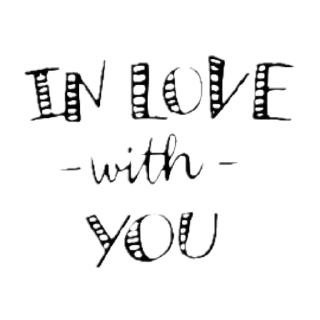 IN LOVE
-with-
YOU